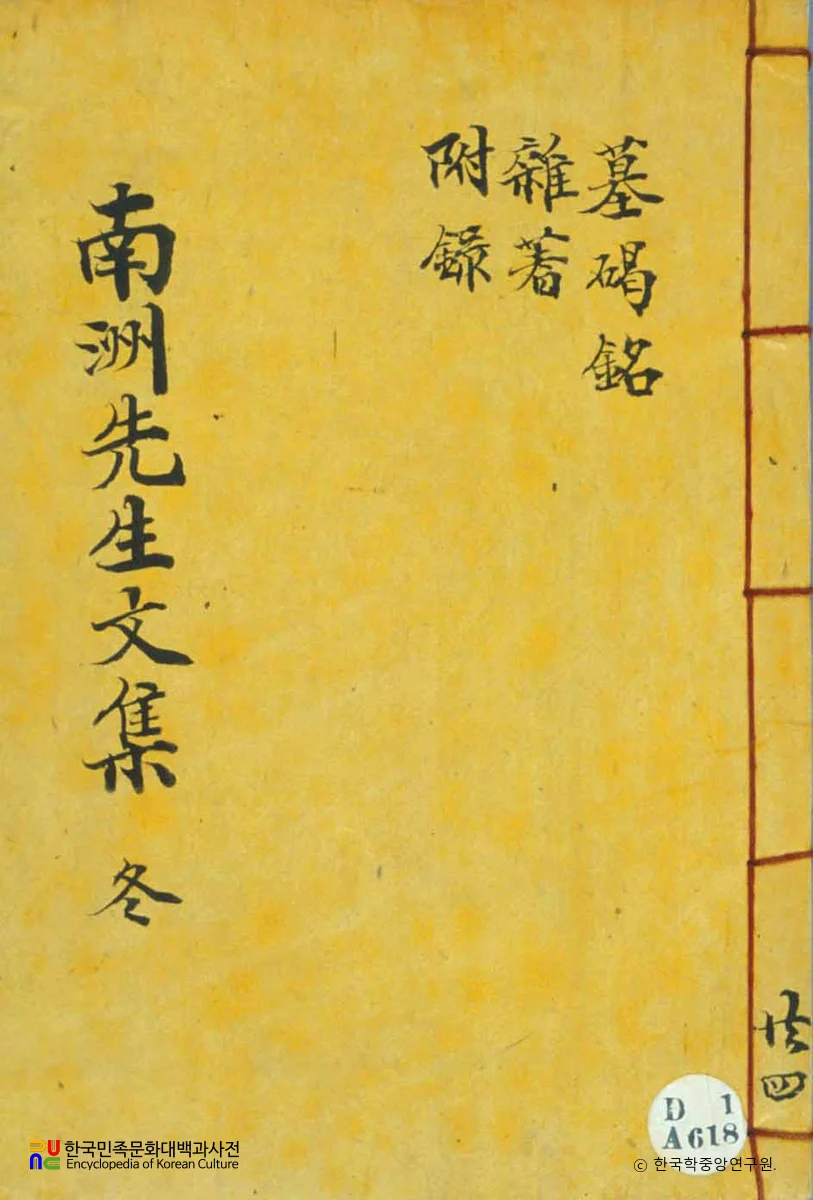 墓碣銘
雜著
附錄
南洲先生文集 冬
共四
D 1
A618
한국민족문화대백과사전
Encyclopedia of Korean Culture
ⓒ 한국학중앙연구원.